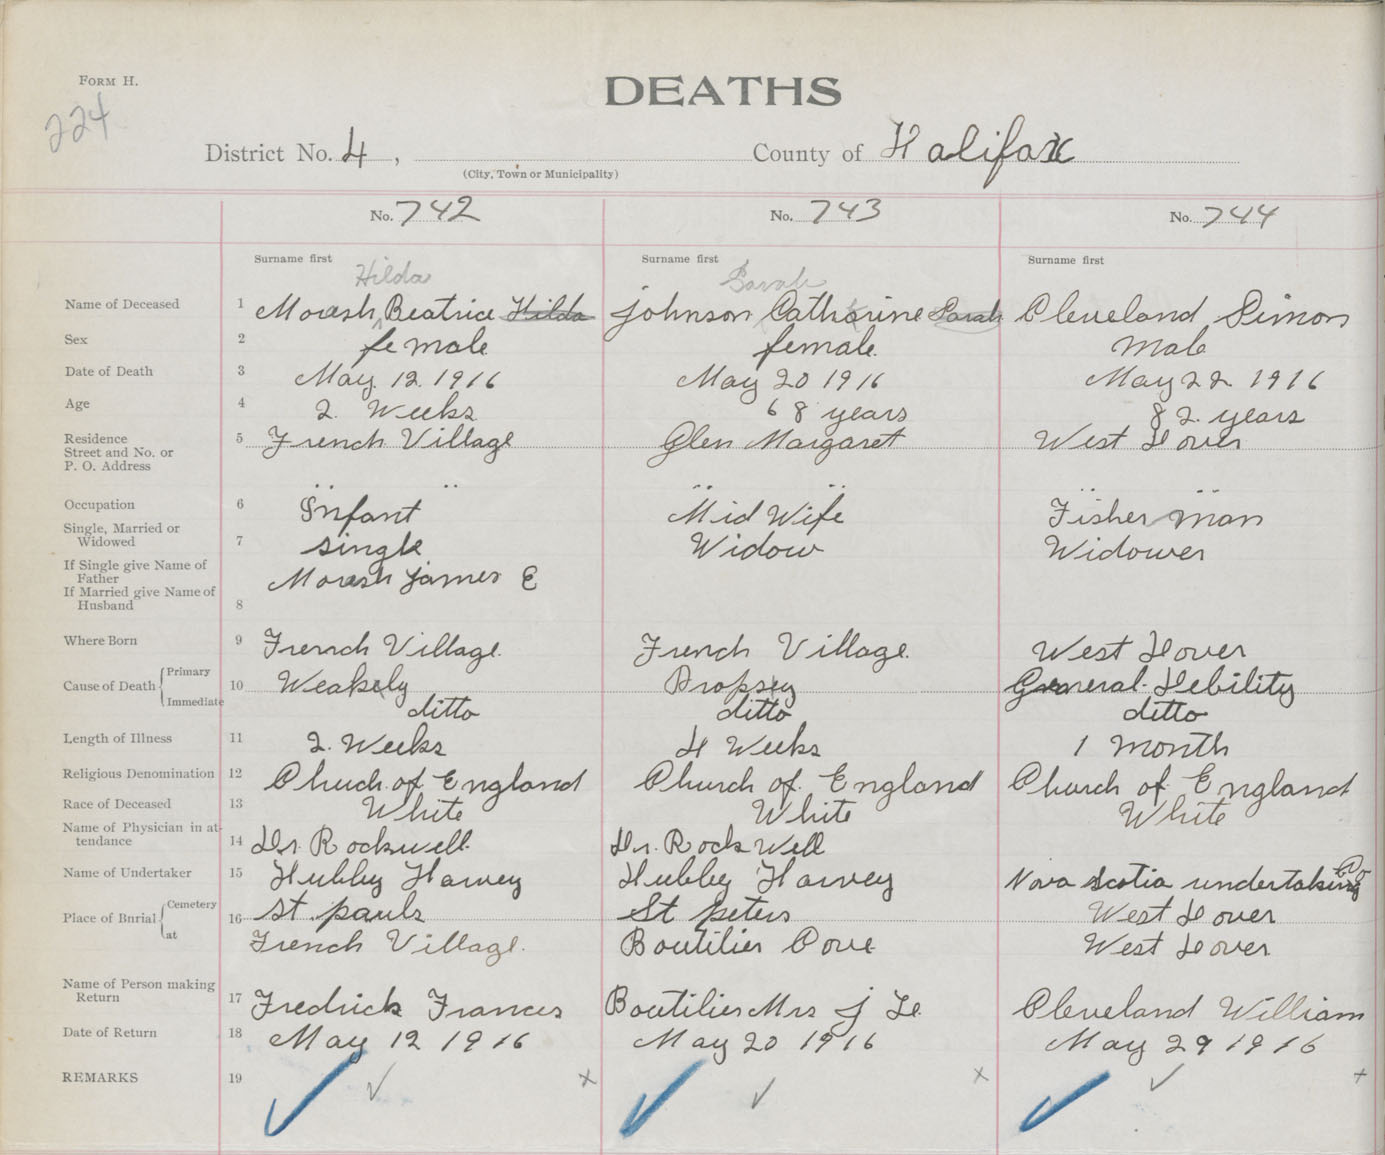 FORM H.
DEATHS
224
District No. 4, County of Halifax
(City, Town or Municipality)
No. 742 No. 743 No. 744
Surname first Surname first Surname first
Hilda Sarah
Name of Deceased 1 Moresh Beatrice Hilda Johnson Catharine Sarah Cleveland Simon
Sex 2 female female. male
Date of Death 3 May. 12. 1916 May 20 1916 May 22 1916
Age 4 2. Weeks 68 years 82 years
Residence
Street and No. or
P. O. Address
5 French Village Glen Margaret West Dover
Occupation 6 Infant Mid Wife Fisher man
Single, Married or
Widowed
7 single Widow Widower
If Single give Name of
Father
If Married give Name of
Husband
8 Moresh James E
Where Born 9 French Village. French Village. West Dover
Cause of Death Primary 10 Weakly Dropsy General Debility
Immediate ditto ditto ditto
Length of Illness 11 2. Weeks 4 Weeks 1 month
Religious Denomination 12 Chuch of England Church of. England Church of England
Race of Deceased 13 White White White
Name of Physician in at-
tendance
14 Dr. Rockwell. Dr. Rock Well
Name of Undertaker 15 Hubley Harvey Hubley Harvey Nova Scotia undertaking Co
Place of Burial Cemetery 16 St. pauls St peters West Dover
at French Village. Boutilier Cove West Dover
Name of Person making
Return
17 Fredrick Frances Boutilier Mrs J Le Cleveland William
Date of Return 18 May 12 1916 May 20 1916 May 29 1916
REMARKS 19